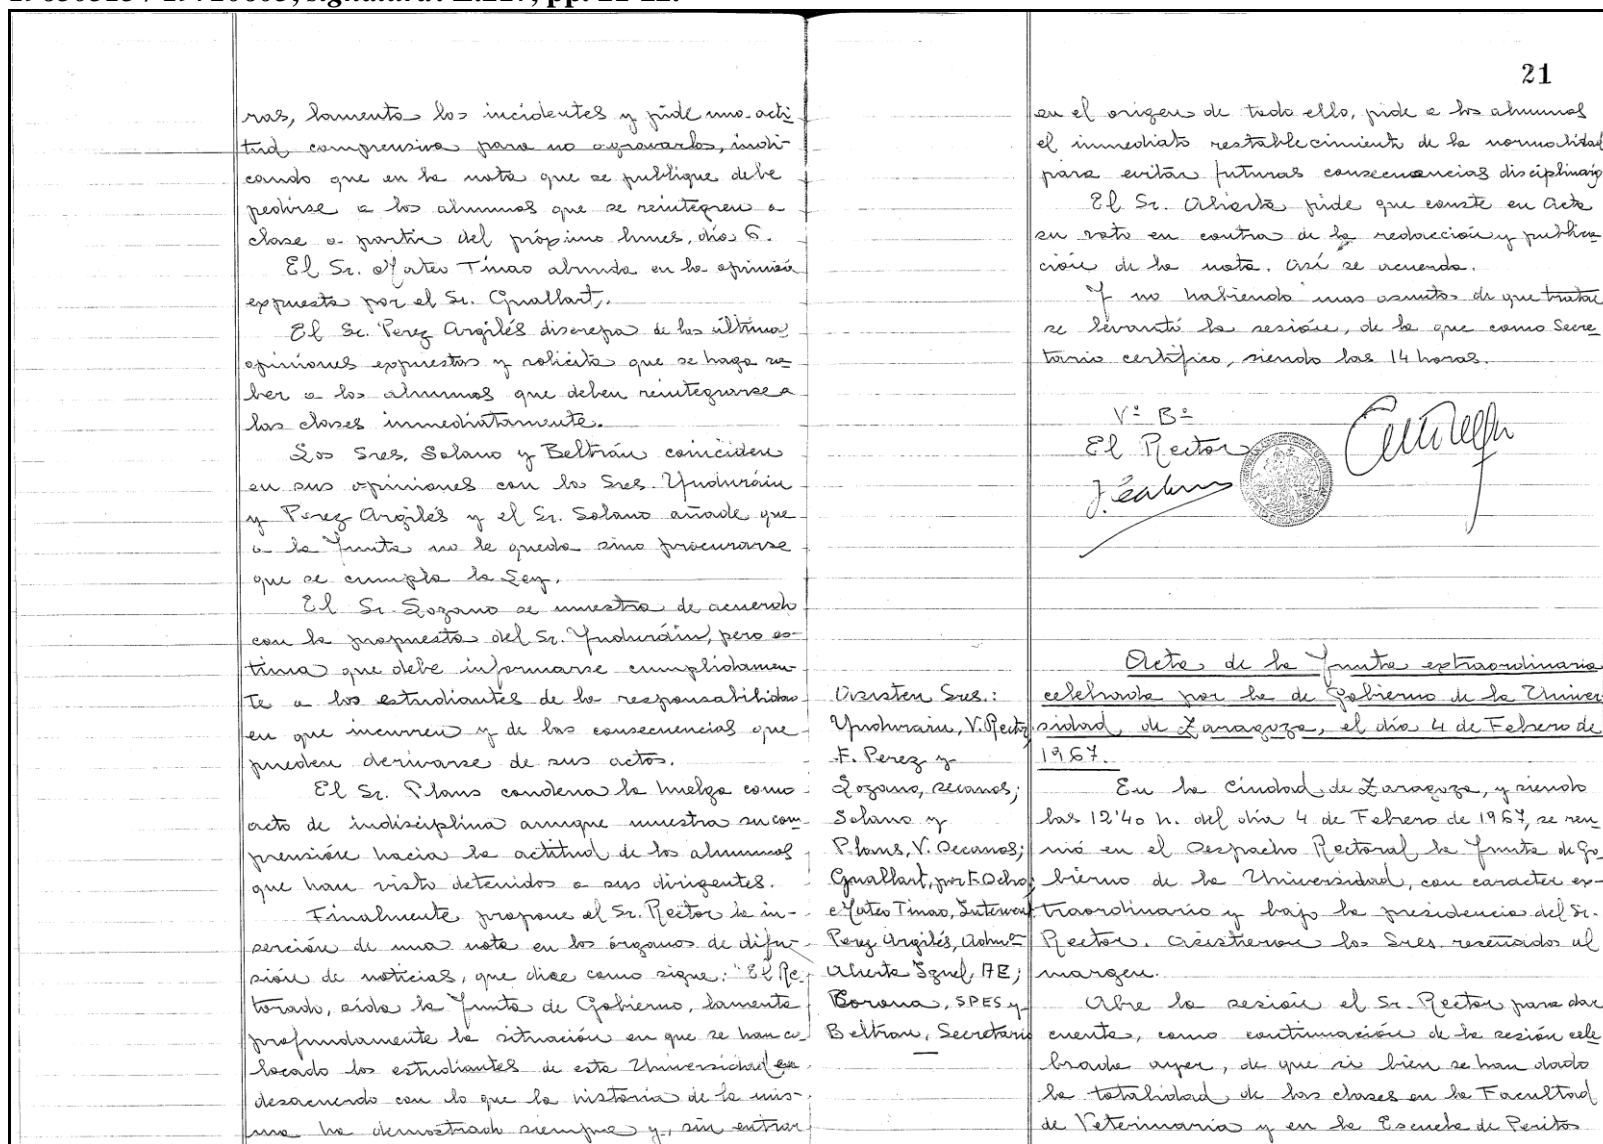 ras, lamenta los incidentes y pide una acti-
tud comprensiva para no agravarlos, indi-
cando que en la nota que se publique debe
pedirse a los alumnos que se reintegren a
clase a partir del próximo lunes, día 6.
El Sr. Mateo Tinao abunda en la opinión
expuesta por el Sr. Guallart.
El Sr. Perez Argilés discrepa de las última
opiniones expuestas y solicita que se haga sa-
ber a los alumnos que deben reintegrarse a
las clases inmediatamente.
Los Sres. Solano y Beltrán coinciden
en sus opiniones con los Sres. Ynduráin
y Perez Argilés y el Sr. Solano añade que
a la Junta no le queda sino procurarse
que se cumpla la Ley.
El Sr. Lozano se muestra de acuerdo
con la propuesta del Sr. Ynduráin, pero es-
tima que debe informarse cumplidamen-
te a los estudiantes de la responsabilidad
en que incurren y de las consecuencias que
pueden derivarse de sus actos.
El Sr. Plans condena la huelga como
acto de indisciplina aunque muestra su com-
prensión hacia la actitud de los alumnos
que han visto detenidos a sus dirigentes.
Finalmente propone el Sr. Rector la in-
serción de una nota en los órganos de difu-
sión de noticias, que dice como sigue: "El Rec-
torado, oída la Junta de Gobierno, lamenta
profundamente la situación en que se han co-
locado los estudiantes de esta Universidad en
desacuerdo con lo que la historia de la mis-
ma ha demostrado siempre y, sin entrar
21
en el origen de todo ello, pide a los alumnos
el inmediato restablecimiento de la normalidad
para evitar futuras consecuencias disciplinarias
El Sr. Abierta pide que conste en Acta
su voto en contra de la redacción y publica-
ción de la nota. Así se acuerda.
Y no habiendo mas asuntos de que tratar
se levantó la sesión, de la que como Secre-
tario certifico, siendo las 14 horas.
Vº Bº
El Rector
Acta de la Junta extraordinaria
celebrada por la de Gobierno de la Univer-
sidad, de Zaragoza, el día 4 de Febrero de
1967.
Asisten Sres.:
Ynduráin, V. Rector
F. Perez y
Lozano, Decanos;
Solano y
Plans, V. Decanos;
Guallart, por F. Ocho;
Mateo Tinao, Interven
Perez Argilés, Admº
Abierta Iguel, AE;
Borona, SPES y
Beltran, Secretario
En la Ciudad de Zaragoza, y siendo
las 12'40 h. del día 4 de Febrero de 1967, se reu-
nió en el Despacho Rectoral la Junta de Go-
bierno de la Universidad, con caracter ex-
traordinario y bajo la presidencia del Sr.
Rector. Asistieron los Sres. reseñados al
margen.
Abre la sesión el Sr. Rector para dar
cuenta, como continuación de la sesión cele
brada ayer, de que si bien se han dado
la totalidad de las clases en la Facultad
de Veterinaria y en la Escuela de Peritos